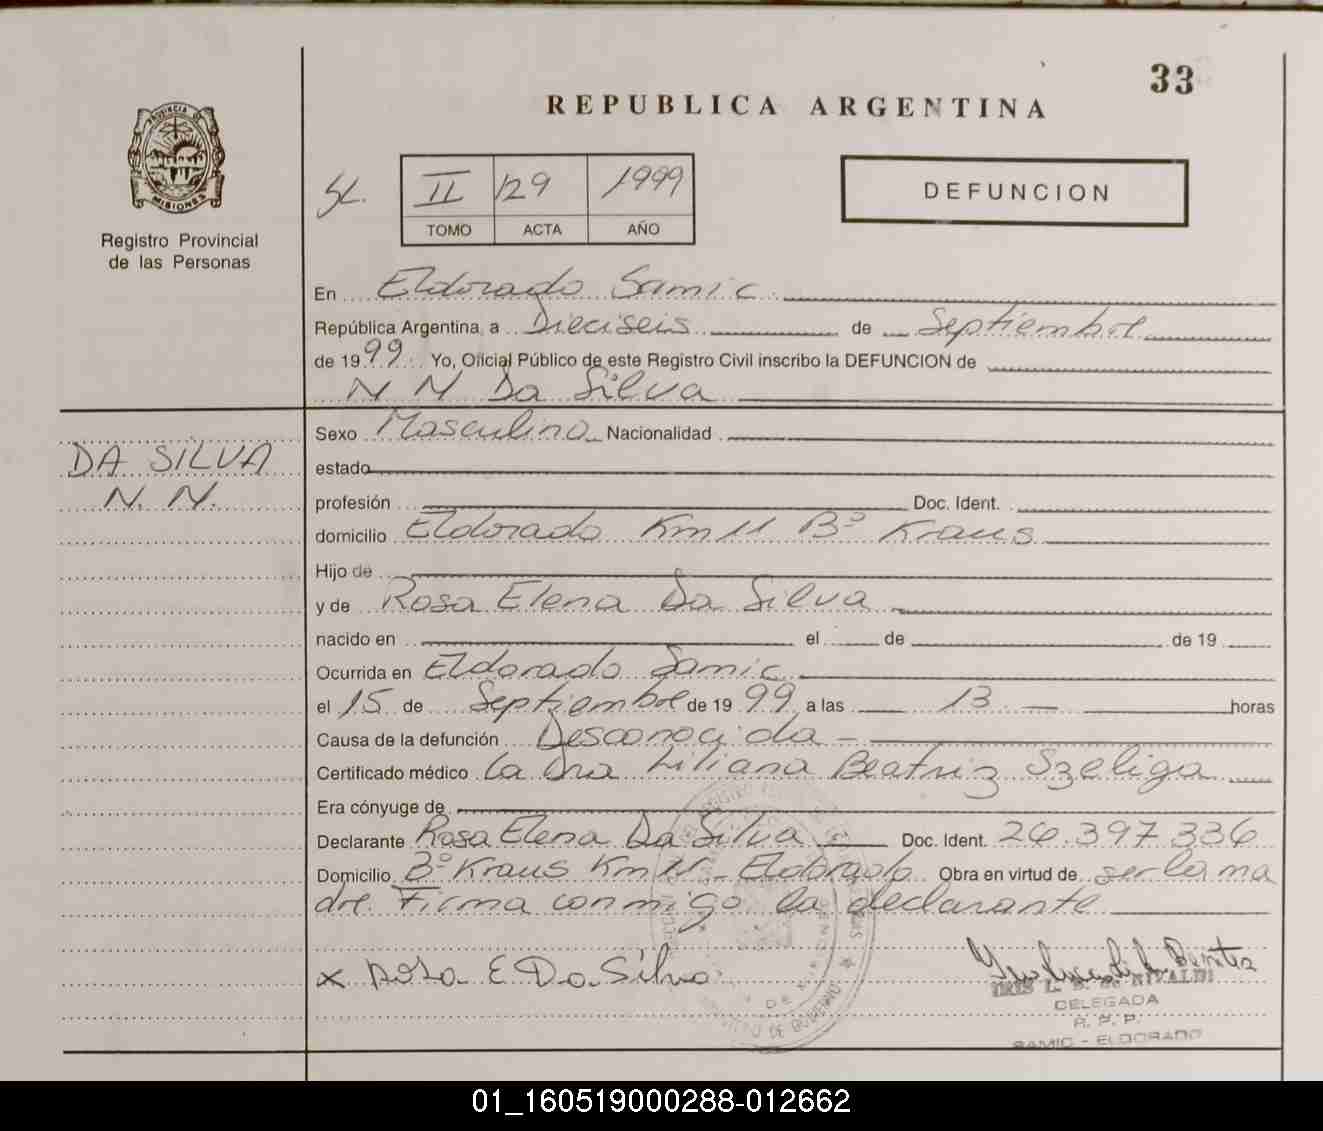 33
REPUBLICA ARGENTINA
PROVINCIA DE
MISIONES
Registro Provincial
de las Personas
II 129 1999
TOMO ACTA AÑO
DEFUNCION
En Eldorado Samic
República Argentina, a Dieciseis de Septiembre
de 1999 Yo, Oficial Público de este Registro Civil inscribo la DEFUNCION de
N N Da Silva
DA SILVA
N. N.
Sexo Masculino Nacionalidad
estado
profesión Doc. Ident.
domicilio Eldorado Km 11 Bº Kraus
Hijo de
y de Rosa Elena Da Silva
nacido en el de de 19
Ocurrida en Eldorado Samic
el 15 de Septiembre de 1999 a las 13 horas
Causa de la defunción Desconocida
Certificado médico La Dra Liliana Beatriz Szeliga
Era cónyuge de
Declarante Rosa Elena Da Silva Doc. Ident. 26.397.336
Domicilio Bº Kraus Km 11 Eldorado Obra en virtud de ser la ma
dre Firma conmigo la declarante
x Rosa E Da Silva
DELEGADA
R. P. P.
SAMIC - ELDORADO
01_160519000288-012662